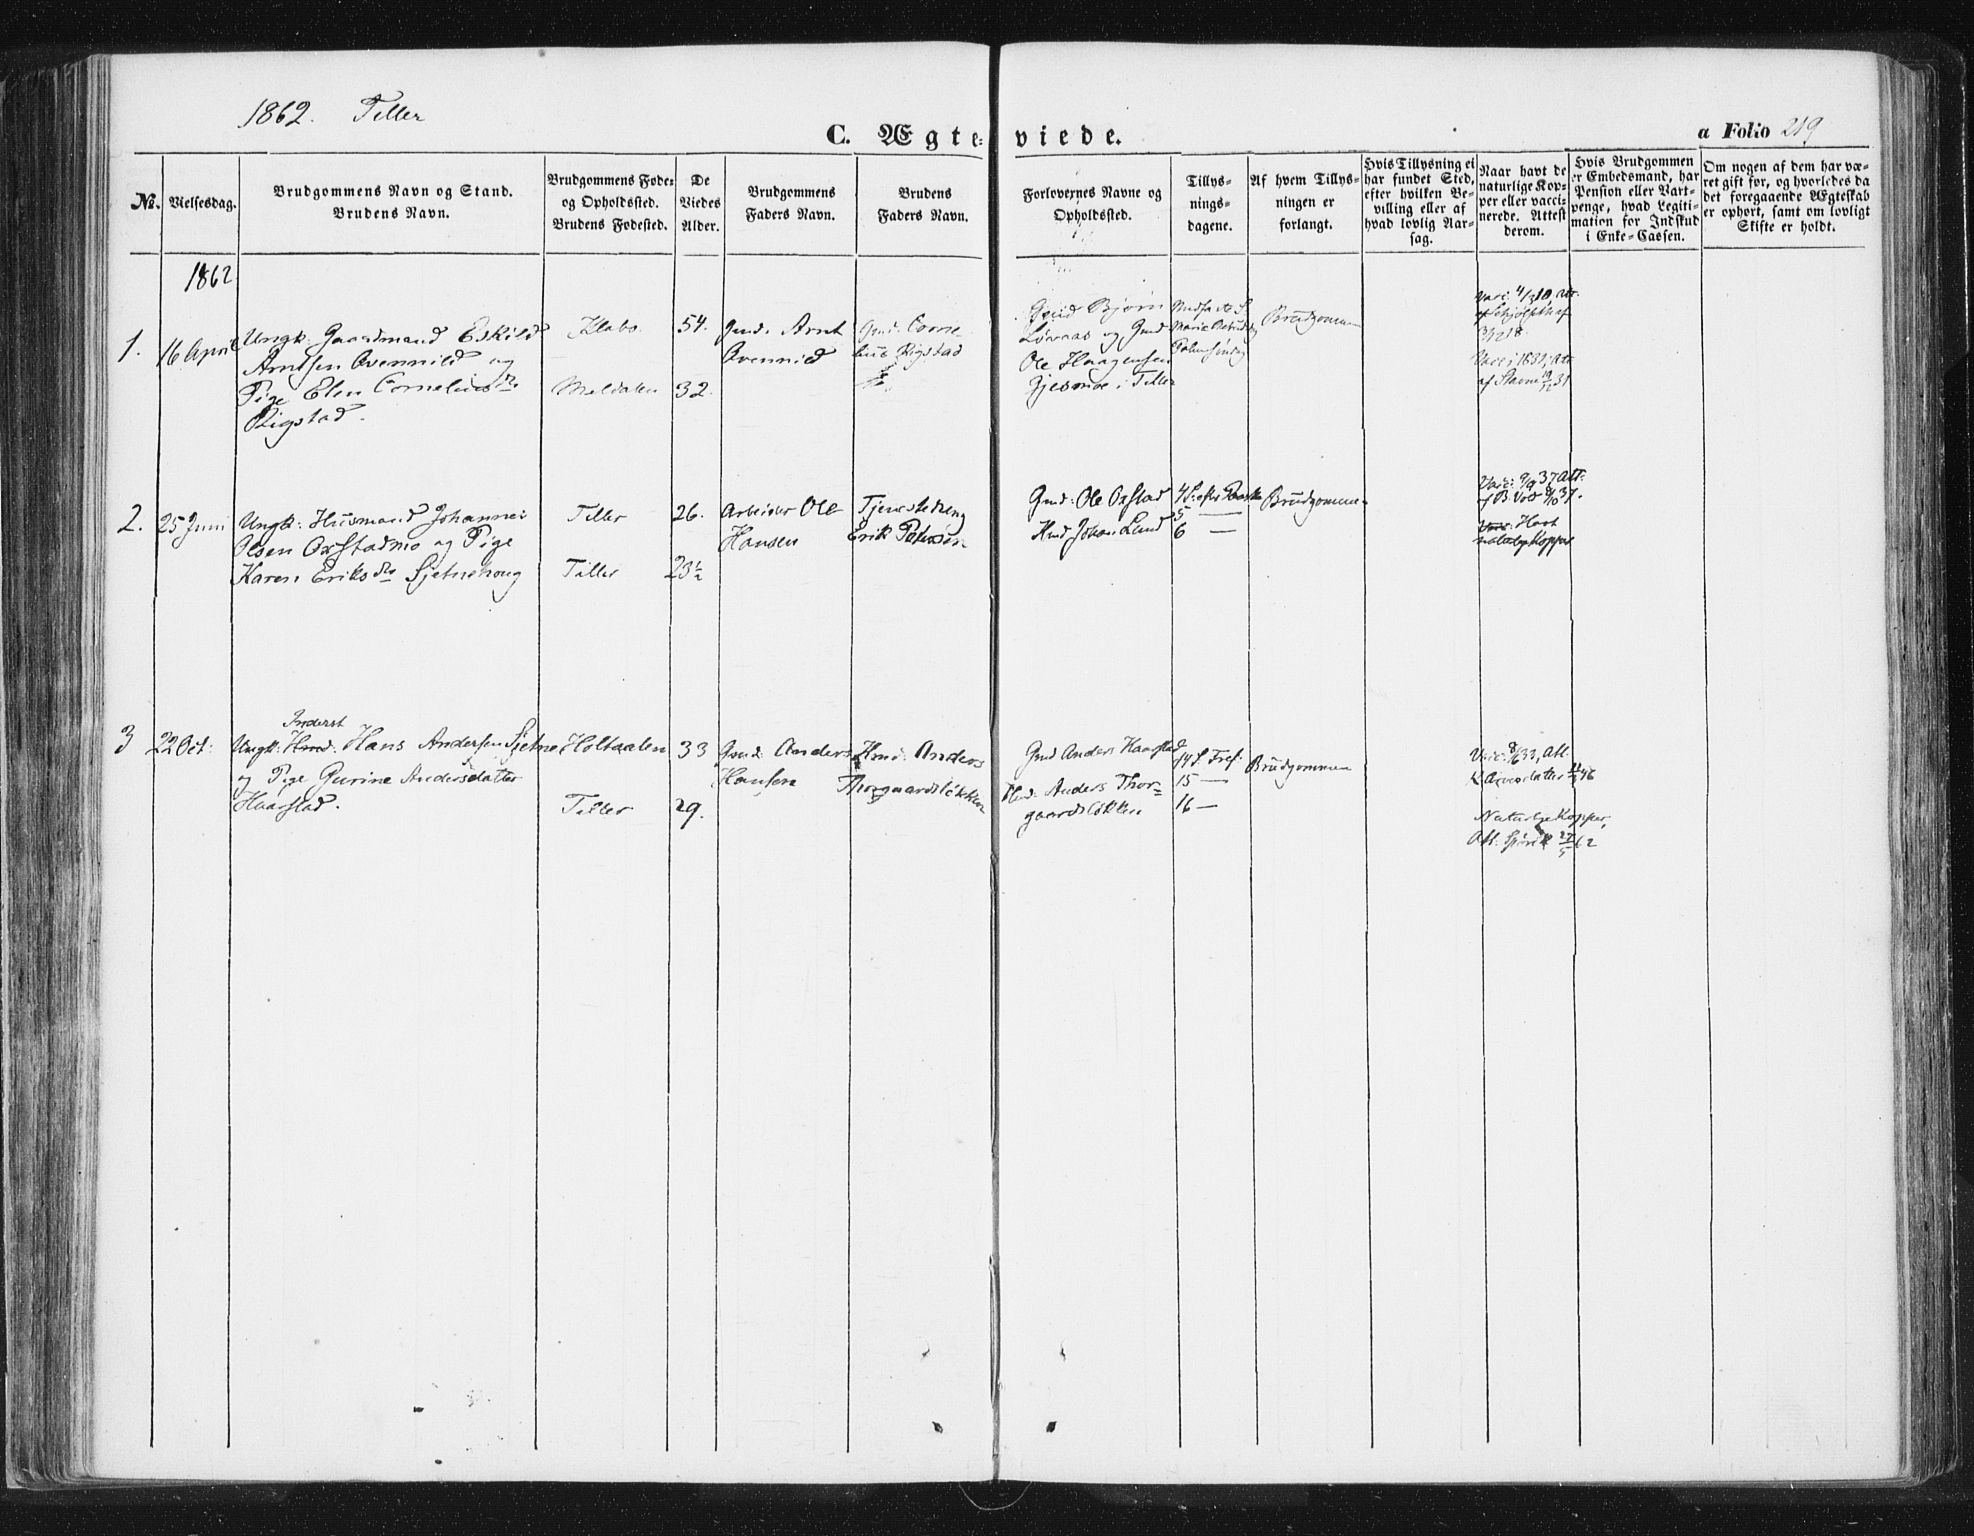 1862. Tiller
C. Ægteviede.
a Folio 219
No.
Vielsesdag.
Brudgommens Navn og Stand.
Brudens Navn.
Brudgommens Føde-
og Opholdssted.
Brudens Fødested.
De
Viedes
Alder.
Brudgommens
Faders Navn.
Brudens
Faders Navn.
Forlovernes Navne og
Opholdssted.
Tillys-
nings-
dagene.
Af hvem Tillys-
ningen er
forlangt.
Hvis Tillysning ei
har fundet Sted,
efter hvilken Be-
villing eller af
hvad lovlig Aar-
sag.
Naar havt de
naturlige Kop-
per eller vacci-
nerede. Attest
derom.
Hvis Brudgommen
er Embedsmand, har
Pension eller Vart-
penge, hvad Legiti-
mation for Indskud
i Enke-Cassen.
Om nogen af dem har væ-
ret gift før, og hvorledes da
det foregaaende Ægteskab
er ophørt, samt om lovligt
Skifte er holdt.
1862
1.
16 April
Ungk: Gaardmand Eskild
Arntsen Qvennild og
Pige Elen Corneliusdr
Rigstad.
Klabo
Meldalen
54.
32.
Gmd: Arnt
Qvennild
Gmd: Corne-
lius Rigstad
Gmd Bjørn
Løvaas og Gmd
Ole Haagensen
Gjesmoe i Tiller
Midfaste S.
Marie
Palmesøndag
Brudgommen
Vacc: 4/3 18, att.
af
31/2 18.
Vacc: 1831, att
af Stavne 19/12 31
2.
25 Juni
Ungk: Husmand Johannes
Olsen Oxstadmo og Pige
Karen Eriksdr Sjetnehoug
Tiller
Tiller
26.
23½
Arbeider Ole
Hansen
Tjenestedreng
Erik Petersen
Gmd: Ole Oxstad
Hmd Johan Lund
4 S. efter Paaske
5 —
6 —
Brudgommen
Vacc: 9/9 37, att:
af B. Voo 9/10 37.
Havt
naturlige Kopper
3
22 Oct:
Inderst
Ungk: Hmd: Hans Andersen Sjetne
og Pige Gurine Andersdatter
Haarstad.
Holtaalen
Tiller
33
29.
Gmd: Anders
Hansen
Hmd: Anders
Thorgaardsløkken
Gmd Anders Haarstad
Hmd: Anders Thor-
gaardsløkken
14 S. Tref:
15 —
16 —
Brudgommen
Vacc: 8/6 33, Att.
46
Naturlige Kopper,
Att: 27/5 62